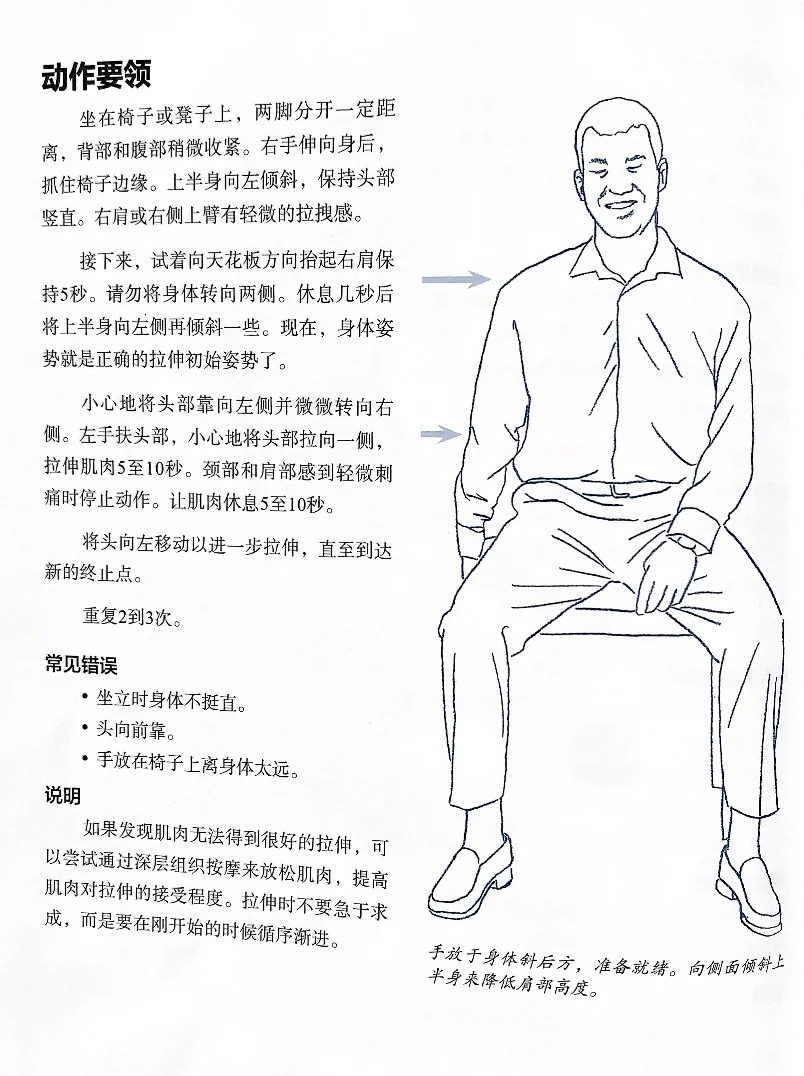 动作要领
坐在椅子或凳子上，两脚分开一定距
离，背部和腹部稍微收紧。右手伸向身后，
抓住椅子边缘。上半身向左倾斜，保持头部
竖直。右肩或右侧上臂有轻微的拉拽感。
接下来，试着向天花板方向抬起右肩保
持5秒。请勿将身体转向两侧。休息几秒后
将上半身向左侧再倾斜一些。现在，身体姿
势就是正确的拉伸初始姿势了。
小心地将头部靠向左侧并微微转向右
侧。左手扶头部，小心地将头部拉向一侧，
拉伸肌肉5至10秒。颈部和肩部感到轻微刺
痛时停止动作。让肌肉休息5至10秒。
将头向左移动以进一步拉伸，直至到达
新的终止点。
重复2到3次。
常见错误
• 坐立时身体不挺直。
• 头向前靠。
• 手放在椅子上离身体太远。
说明
如果发现肌肉无法得到很好的拉伸，可
以尝试通过深层组织按摩来放松肌肉，提高
肌肉对拉伸的接受程度。拉伸时不要急于求
成，而是要在刚开始的时候循序渐进。
手放于身体斜后方，准备就绪。向侧面倾斜上
半身来降低肩部高度。